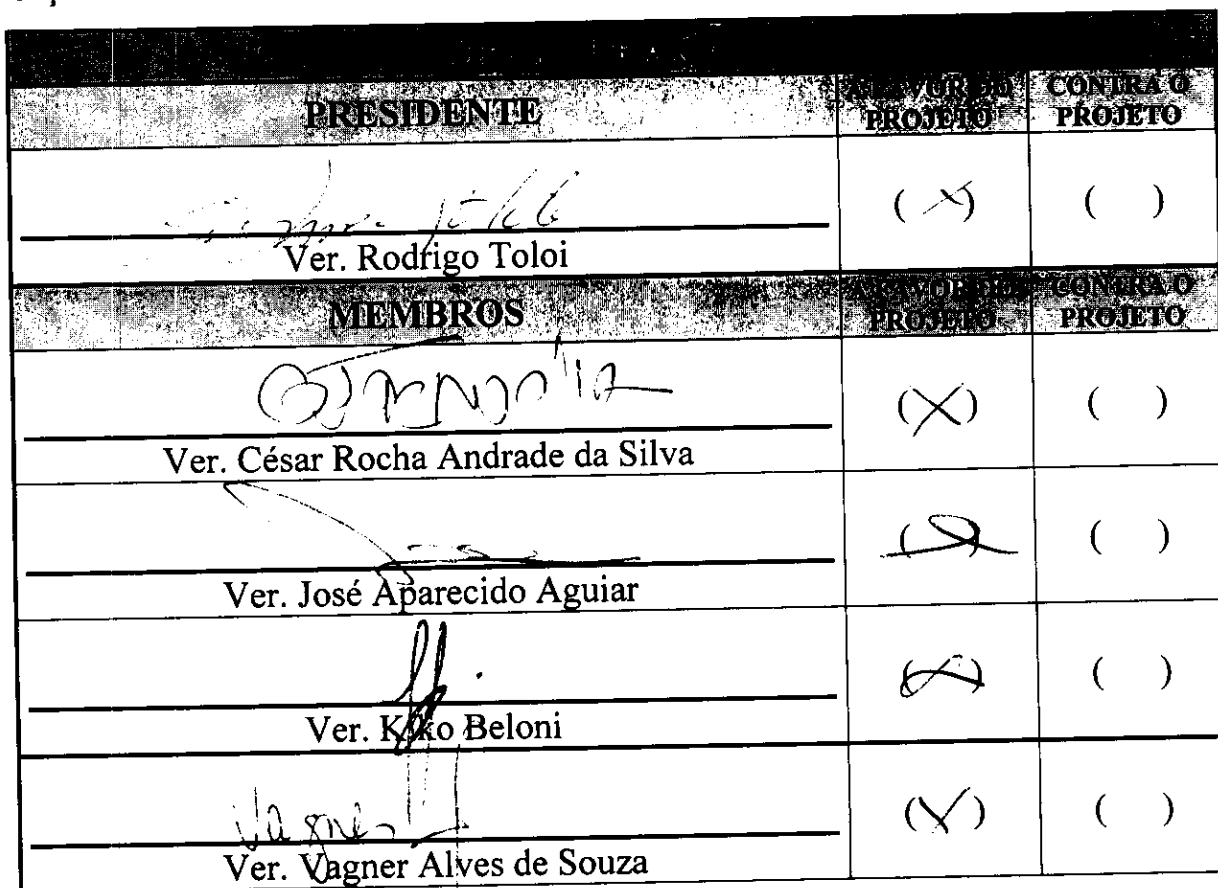 PRESIDENTE
A FAVOR DO PROJETO
CONTRA O PROJETO
(X) ( )
Ver. Rodrigo Toloi
MEMBROS
A FAVOR DO PROJETO
CONTRA O PROJETO
(X) ( )
Ver. César Rocha Andrade da Silva
( ) ( )
Ver. José Aparecido Aguiar
(X) ( )
Ver. Kiko Beloni
Vagner
(X) ( )
Ver. Vagner Alves de Souza